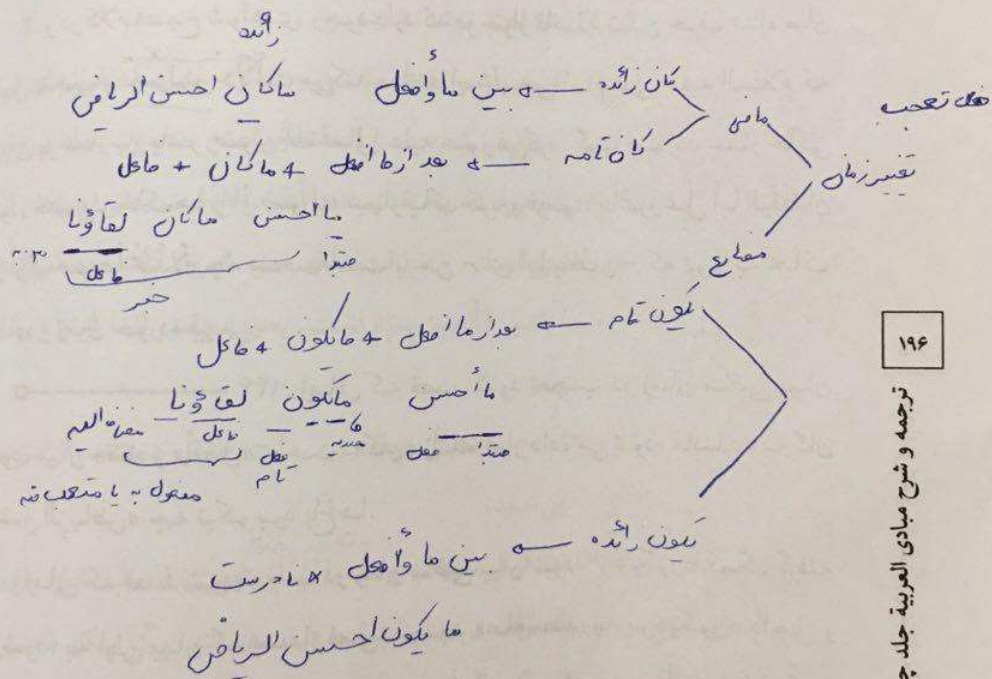 زائده
کان زائده ← بین ما و أفعل ماکان احسن الریاض
فعل تعجب
ماضی
کان تامه ← بعد از ما افعل + ماکان + فاعل
تغییر زمان
ما احسن ماکان لقاؤنا
مبتدا فاعل
خبر
مضارع
یکون تام ← بعد از ما افعل + مایکون + فاعل
ما أحسن مایکون لقاؤنا
مبتدا فعل ما مصدریه فعل تام فاعل مضاف الیه
مفعول به یا متعجب منه
یکون زائده ← بین ما و أفعل * نادرست
ما یکون احسن الریاض
۱۹۶
ترجمه و شرح مبادی العربیة جلد